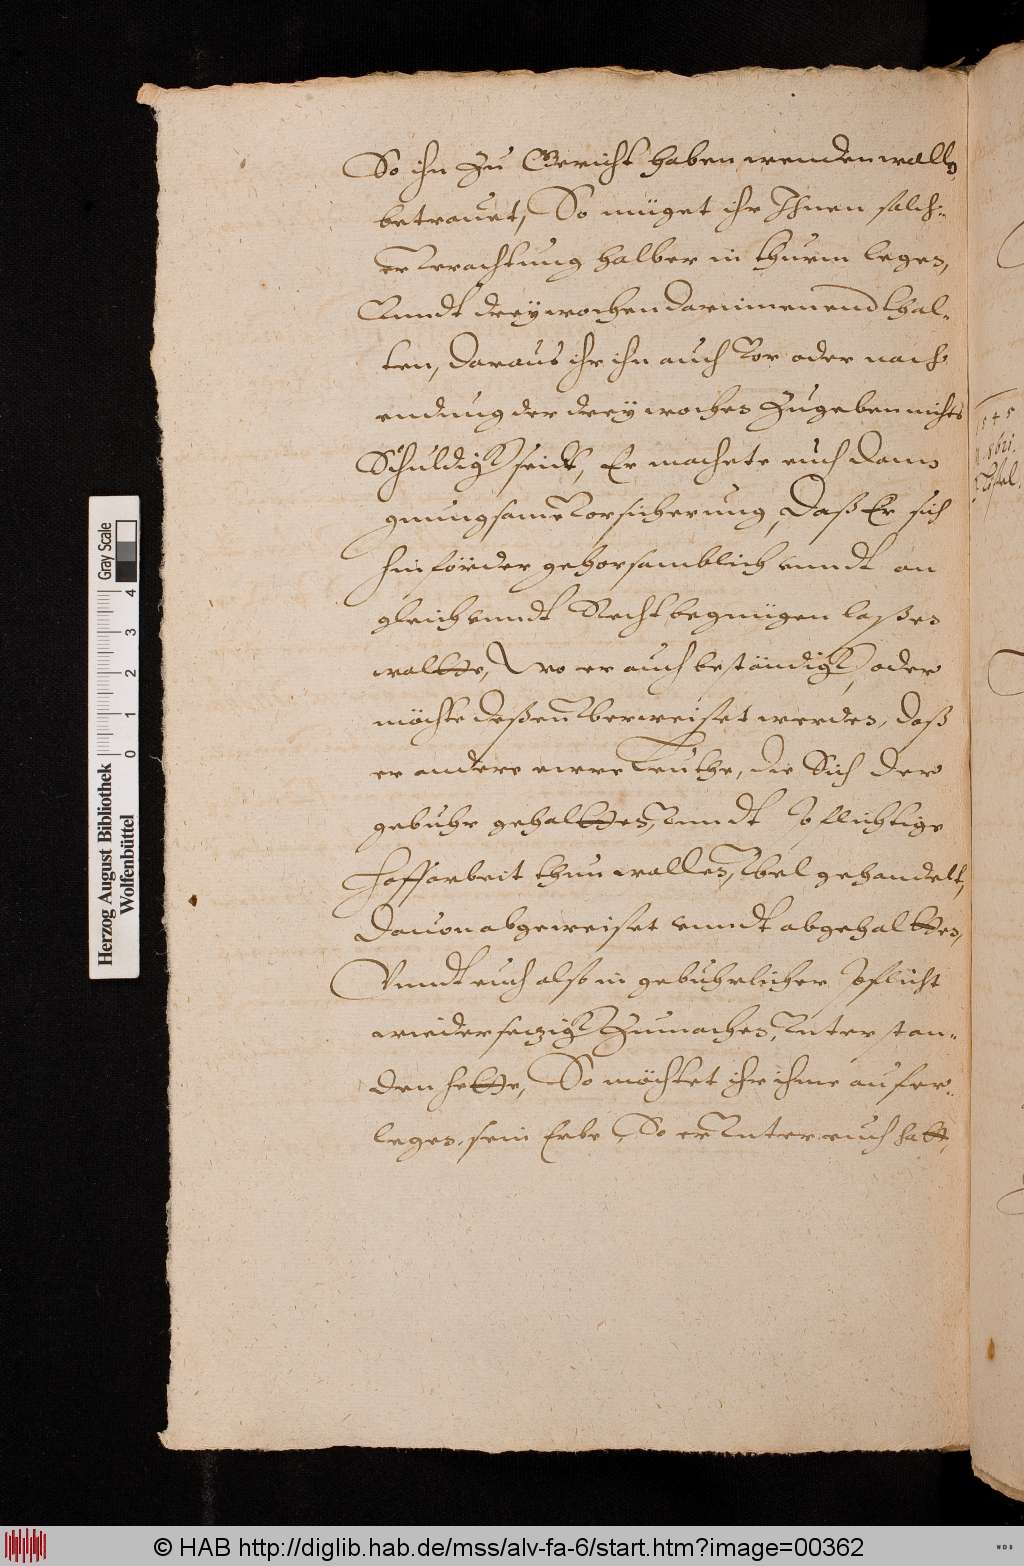 So ihn zu Gericht haben wenden wolln
betrauet, So müget ihr Ihnen solch-
er Verachtung halber in thurm legen,
Vnndt drey wochen darinnen endthal-
ten, daraus ihr ihn auch vor oder nach
endung der drey wochen zugeben nichts
Schuldigk seidt, Er machete euch dann
gnungsame Vorsicherung, Daß Er sich
hinförder gehorsamblich vnndt an
gleich vnndt Recht begnügen laßen
woltte, Wo er auch beständigk, oder
möchte deßen Vberweiset werden, daß
er andere ewre Leuthe, die Sich der
gebuhr gehaltten, vnndt Pflichtige
Hoffarbeit thun wollen, Vbel gehandelt,
Dauon abgeweiset vnndt abgehaltten,
Vnndt euch also in gebuhrlicher Pflicht
wiedersezigk zumachen, Vnterstan-
den hette, So möchtet ihr ihme aufer-
legen, sein Erbe So er Vnter euch hatt,
1545
Herzog August Bibliothek
Wolfenbüttel
0 1 2 3 4
Gray Scale
© HAB http://diglib.hab.de/mss/alv-fa-6/start.htm?image=00362
WDB